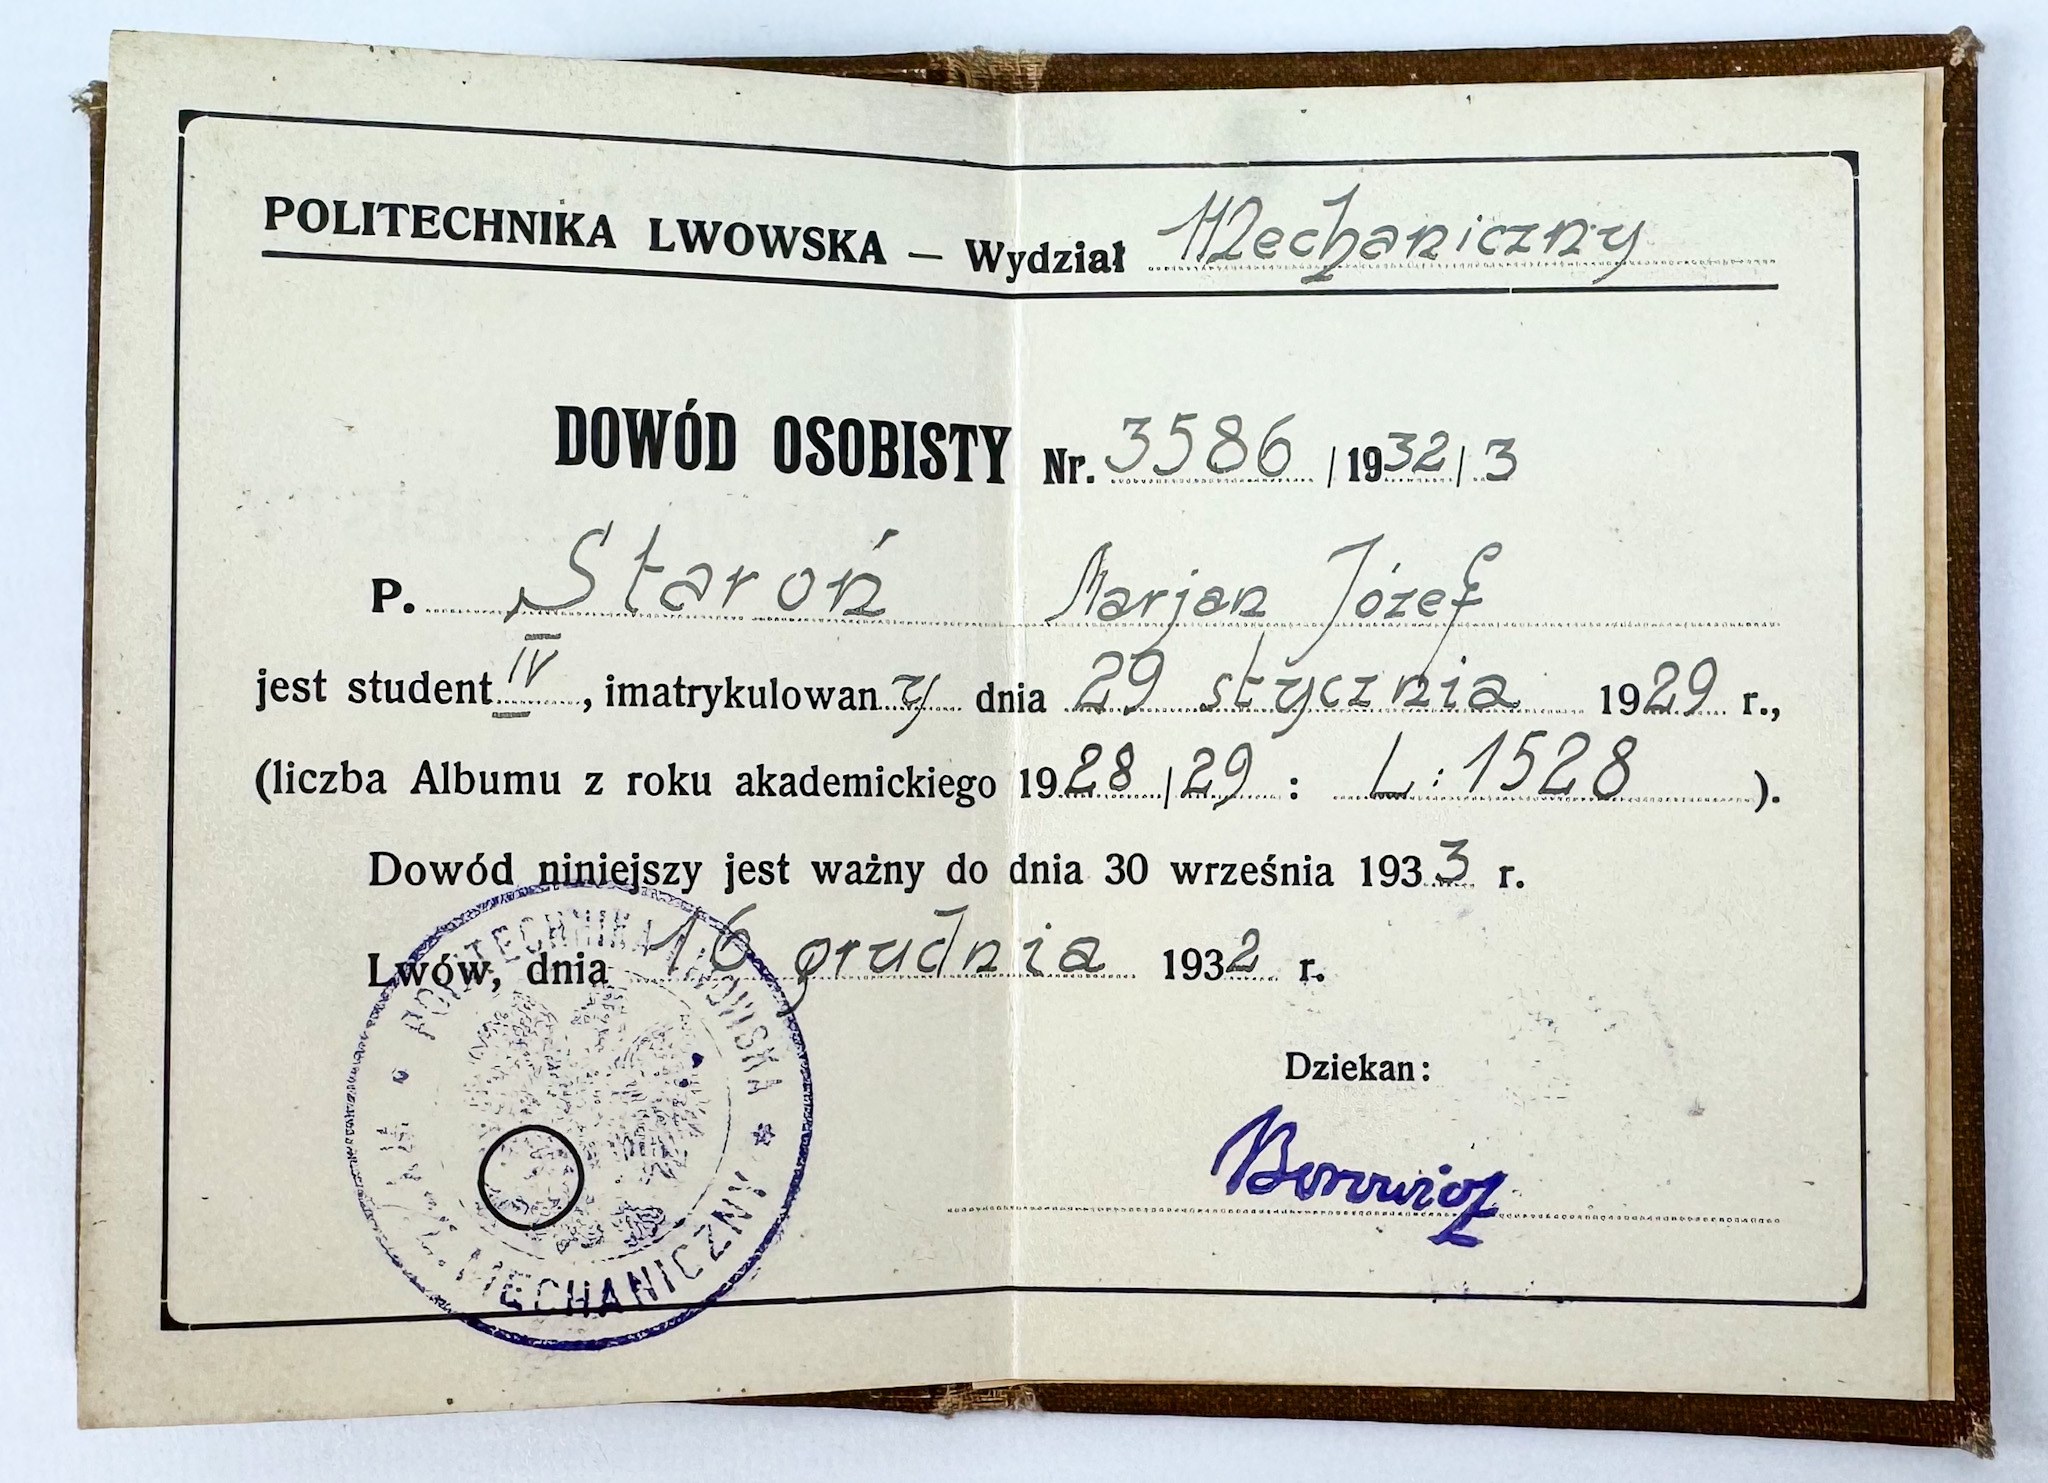 POLITECHNIKA LWOWSKA — Wydział Mechaniczny
DOWÓD OSOBISTY Nr. 3586 /1932/3
P. Staroń Marjan Józef
jest student IV, imatrykulowany dnia 29 stycznia 1929 r.,
(liczba Albumu z roku akademickiego 1928/29 : L: 1528 ).
Dowód niniejszy jest ważny do dnia 30 września 1933 r.
Lwów, dnia 16 grudnia 1932 r.
POLITECHNIKA LWOWSKA
MECHANICZNY
Dziekan:
Borowicz